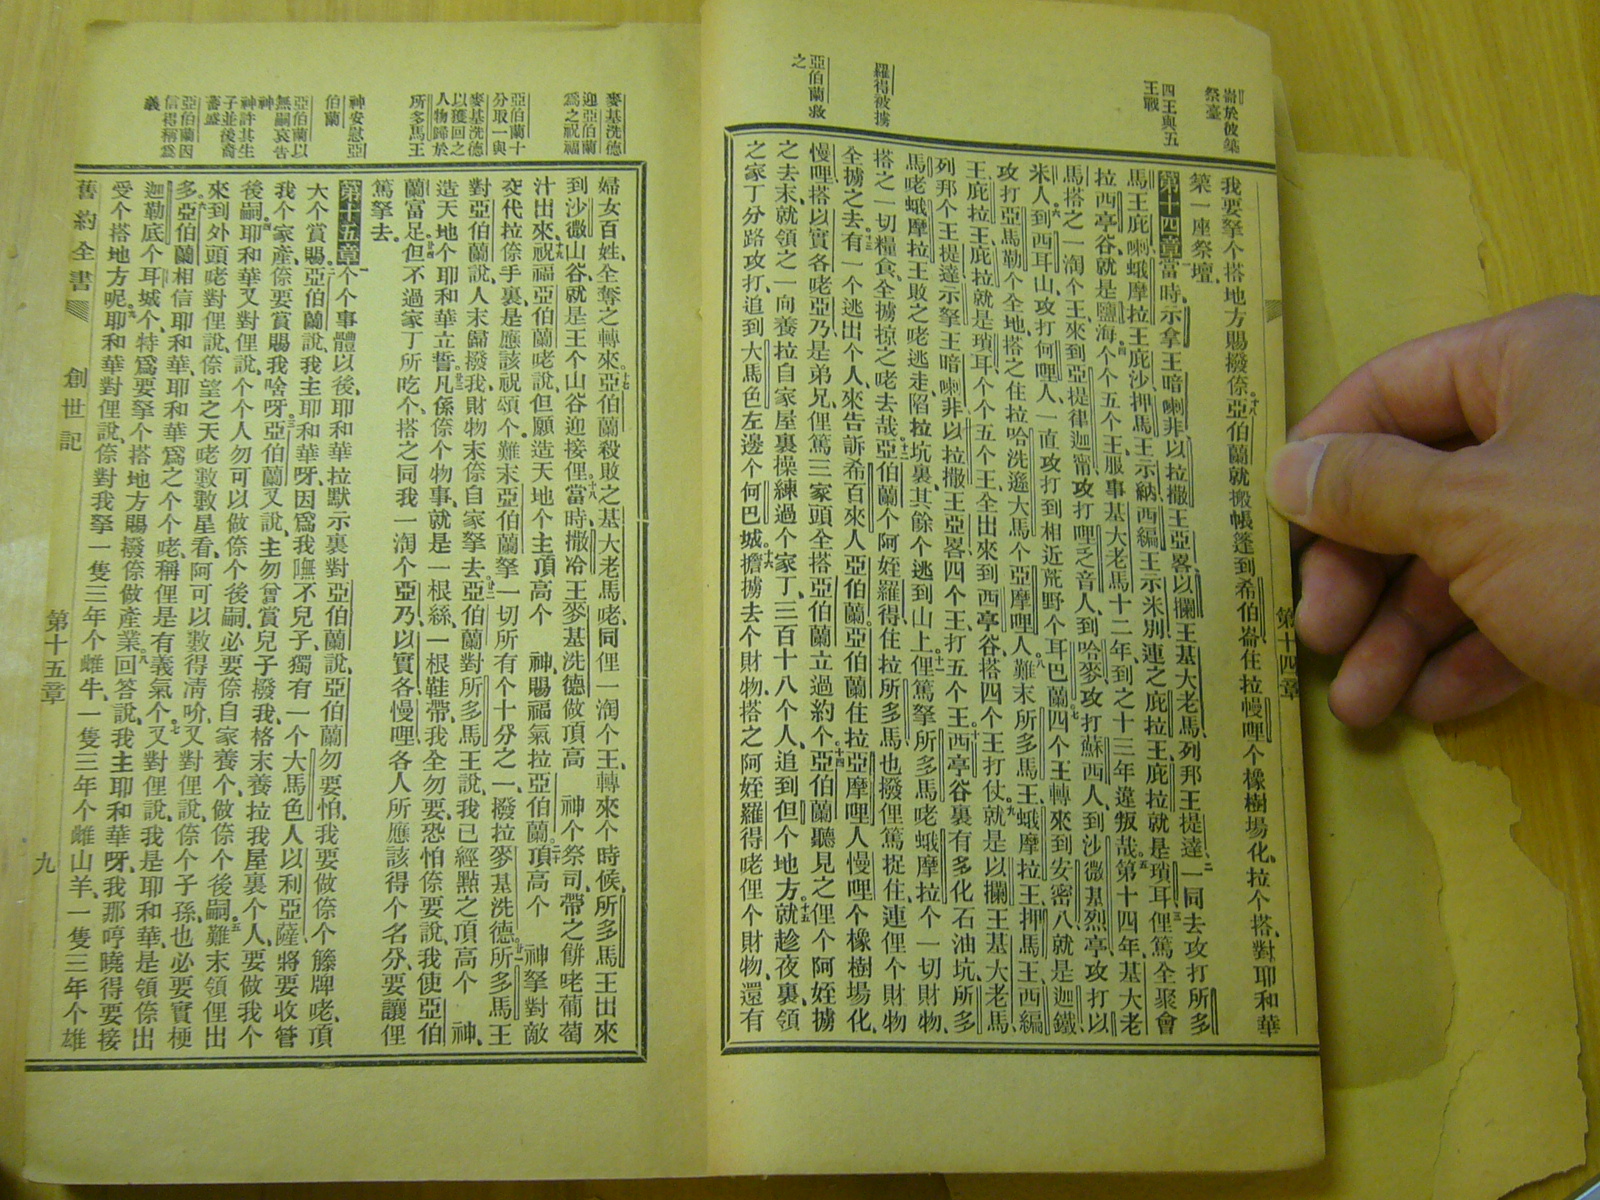 崙於彼築
祭臺
四王與五
王戰
羅得被擄
亞伯蘭救
之
第十四章
我要拏个搭地方賜撥㑚十八亞伯蘭就搬帳篷到希伯崙住拉慢哩个橡樹場化拉个搭對耶和華
築一座祭壇
第十四章 一當時示拿王暗喇非以拉撒王亞畧以攔王基大老馬列邦王提達二一同去攻打所多
馬王庇喇蛾摩拉王庇沙押馬王示納西編王示米別連之庇拉王庇拉就是瑣耳三俚篤全聚會
拉西亭谷就是鹽海四个个五个王服事基大老馬十二年到之十三年違叛哉五第十四年基大老
馬搭之一淘个王來到亞提律迦甯攻打哩乏音人到哈麥攻打蘇西人到沙微基烈亭攻打以
米人六到西耳山攻打何哩人一直攻打到相近荒野个耳巴蘭七四个王轉來到安密八就是迦鐵
攻打亞馬勒个全地搭之住拉哈洗遜大馬个亞摩哩人八難末所多馬王蛾摩拉王押馬王西編
王庇拉王庇拉就是瑣耳个个五个王全出來到西亭谷搭四个王打仗九就是以攔王基大老馬
列邦个王提達示拏王暗喇非以拉撒王亞畧四个王打五个王十西亭谷裏有多化石油坑所多
馬咾蛾摩拉王敗之咾逃走陷拉坑裏其餘个逃到山上十一俚篤拏所多馬咾蛾摩拉个一切財物
搭之一切糧食全擄掠之咾去哉十二亞伯蘭个阿姪羅得住拉所多馬也撥俚篤捉住連俚个財物
全擄之去十三有一个逃出个人來告訴希百來人亞伯蘭亞伯蘭住拉亞摩哩人慢哩个橡樹場化
慢哩搭以實各咾亞乃是弟兄俚篤三家頭全搭亞伯蘭立過約个十四亞伯蘭聽見之俚个阿姪擄
之去末就領之一向養拉自家屋裏操練過个家丁三百十八个人追到但个地方十五就趁夜裏領
之家丁分路攻打追到大馬色左邊个何巴城十六擔擄去个財物搭之阿姪羅得咾俚个財物還有
麥基洗德
迎亞伯蘭
爲之祝福
亞伯蘭十
分取一與
麥基洗德
以獲回之
人物歸於
所多馬王
神安慰亞
伯蘭
亞伯蘭以
無嗣哀告
神
神許其生
子並後裔
蕃盛
亞伯蘭因
信得稱爲
義
婦女百姓全奪之轉來十七亞伯蘭殺敗之基大老馬咾同俚一淘个王轉來个時候所多馬王出來
到沙微山谷就是王个山谷迎接俚十八當時撒冷王麥基洗德做頂高 神个祭司帶之餅咾葡萄
汁出來十九祝福亞伯蘭咾說但願造天地个主頂高个 神賜福氣拉亞伯蘭二十頂高个 神拏對敵
交代拉㑚手裏是應該祝頌个難末亞伯蘭拏一切所有个十分之一撥拉麥基洗德廿一所多馬王
對亞伯蘭說人末歸撥我財物末㑚自家拏去廿二亞伯蘭對所多馬王說我已經點之頂高个 神
造天地个耶和華立誓廿三凡係㑚个物事就是一根絲一根鞋帶我全勿要恐怕㑚要說我使亞伯
蘭富足廿四但不過家丁所吃个搭之同我一淘个亞乃以實各慢哩各人所應該得个名分要讓俚
篤拏去
第十五章 一个个事體以後耶和華拉默示裏對亞伯蘭說亞伯蘭勿要怕我要做㑚个籐牌咾頂
大个賞賜二亞伯蘭說我主耶和華呀因爲我嘸不兒子獨有一个大馬色人以利亞薩將要收管
我个家產㑚要賞賜我啥呀三亞伯蘭又說主勿曾賞兒子撥我格末養拉我屋裏个人要做我个
後嗣四耶和華又對俚說个个人勿可以做㑚个後嗣必要㑚自家養个做㑚个後嗣五難末領俚出
來到外頭咾對俚說㑚望之天咾數數星看阿可以數得淸吤又對俚說㑚个子孫也必要實梗
多六亞伯蘭相信耶和華耶和華爲之个个咾稱俚是有義氣个七又對俚說我是耶和華是領㑚出
迦勒底个耳城个特爲要拏个搭地方賜撥㑚做產業八回答說我主耶和華呀我那哼曉得要接
受个搭地方呢九耶和華對俚說㑚對我拏一隻三年个雌牛一隻三年个雌山羊一隻三年个雄
舊約全書 創世記 第十五章 九